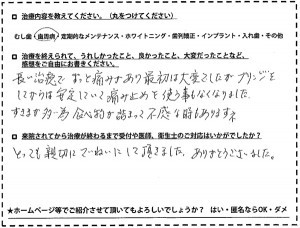 治療内容を教えてください。(丸をつけてください)
むし歯・歯周病・定期的なメンテナンス・ホワイトニング・歯列矯正・インプラント・入れ歯・その他
治療を終えられて、うれしかったこと、良かったこと、大変だったことなど、
感想をご自由にお書きください。
長い治療で ずっと痛みがあり最初は大変でしたが ブリッジを
してからは安定していて痛み止めを使う事もなくなりました。
すきまが 多い為 食べ物が詰まって 不快な時もありますネ
来院されてから治療が終わるまで受付や医師、衛生士のご対応はいかがでしたか?
とっても親切に ていねいにして頂きました。ありがとうございました。
★ホームページ等でご紹介させて頂いてもよろしいでしょうか? はい・匿名ならOK・ダメ